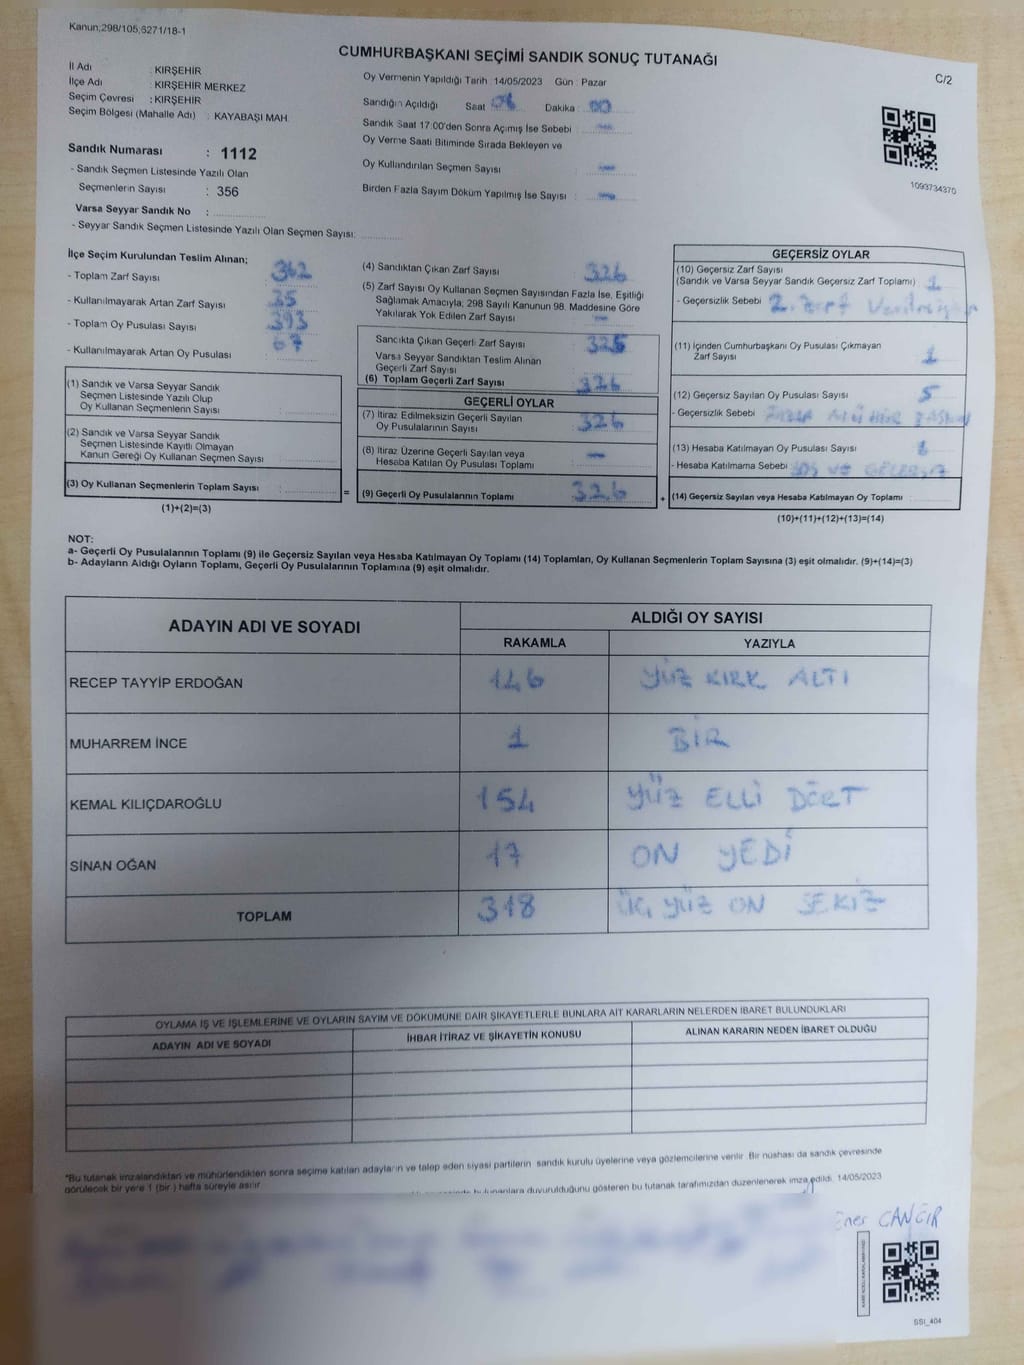 Kanun;298/105;6271/18-1
CUMHURBAŞKANI SEÇİMİ SANDIK SONUÇ TUTANAĞI
C/2
İl Adı : KIRŞEHİR
İlçe Adı : KIRŞEHİR MERKEZ
Seçim Çevresi : KIRŞEHİR
Seçim Bölgesi (Mahalle Adı) : KAYABAŞI MAH.
Sandık Numarası : 1112
- Sandık Seçmen Listesinde Yazılı Olan
Seçmenlerin Sayısı : 356
Varsa Seyyar Sandık No :
- Seyyar Sandık Seçmen Listesinde Yazılı Olan Seçmen Sayısı:
Oy Vermenin Yapıldığı Tarih : 14/05/2023 Gün : Pazar
Sandığın Açıldığı Saat 08 Dakika : 00
Sandık Saat 17:00'den Sonra Açımış İse Sebebi : —
Oy Verme Saati Bitiminde Sırada Bekleyen ve
Oy Kullandırılan Seçmen Sayısı : —
Birden Fazla Sayım Döküm Yapılmış İse Sayısı : —
1093734370
İlçe Seçim Kurulundan Teslim Alınan;
- Toplam Zarf Sayısı : 362
- Kullanılmayarak Artan Zarf Sayısı : 35
- Toplam Oy Pusulası Sayısı : 393
- Kullanılmayarak Artan Oy Pusulası : 67
(1) Sandık ve Varsa Seyyar Sandık
Seçmen Listesinde Yazılı Olup
Oy Kullanan Seçmenlerin Sayısı :
(2) Sandık ve Varsa Seyyar Sandık
Seçmen Listesinde Kayıtlı Olmayan
Kanun Gereği Oy Kullanan Seçmen Sayısı :
(3) Oy Kullanan Seçmenlerin Toplam Sayısı :
(1)+(2)=(3)
(4) Sandıktan Çıkan Zarf Sayısı : 326
(5) Zarf Sayısı Oy Kullanan Seçmen Sayısından Fazla İse, Eşitliği
Sağlamak Amacıyla, 298 Sayılı Kanunun 98. Maddesine Göre
Yakılarak Yok Edilen Zarf Sayısı : —
Sandıkta Çıkan Geçerli Zarf Sayısı : 325
Varsa Seyyar Sandıktan Teslim Alınan
Geçerli Zarf Sayısı :
(6) Toplam Geçerli Zarf Sayısı : 326
GEÇERLİ OYLAR
(7) İtiraz Edilmeksizin Geçerli Sayılan
Oy Pusulalarının Sayısı : 326
(8) İtiraz Üzerine Geçerli Sayılan veya
Hesaba Katılan Oy Pusulası Toplamı : —
= (9) Geçerli Oy Pusulalarının Toplamı : 326 +
GEÇERSİZ OYLAR
(10) Geçersiz Zarf Sayısı
(Sandık ve Varsa Seyyar Sandık Geçersiz Zarf Toplamı) : 1
- Geçersizlik Sebebi : 2. zarf
(11) İçinden Cumhurbaşkanı Oy Pusulası Çıkmayan
Zarf Sayısı : 1
(12) Geçersiz Sayılan Oy Pusulası Sayısı : 5
- Geçersizlik Sebebi : MÜHÜR
(13) Hesaba Katılmayan Oy Pusulası Sayısı : 1
- Hesaba Katılmama Sebebi : BOŞ VE GEÇERSİZ
(14) Geçersiz Sayılan veya Hesaba Katılmayan Oy Toplamı :
(10)+(11)+(12)+(13)=(14)
NOT:
a- Geçerli Oy Pusulalarının Toplamı (9) ile Geçersiz Sayılan veya Hesaba Katılmayan Oy Toplamı (14) Toplamları, Oy Kullanan Seçmenlerin Toplam Sayısına (3) eşit olmalıdır. (9)+(14)=(3)
b- Adayların Aldığı Oyların Toplamı, Geçerli Oy Pusulalarının Toplamına (9) eşit olmalıdır.
ADAYIN ADI VE SOYADI
ALDIĞI OY SAYISI
RAKAMLA YAZIYLA
RECEP TAYYİP ERDOĞAN 146 YÜZ KIRK ALTI
MUHARREM İNCE 1 BİR
KEMAL KILIÇDAROĞLU 154 YÜZ ELLİ DÖRT
SİNAN OĞAN 17 ON YEDİ
TOPLAM 318 ÜÇ YÜZ ON SEKİZ
OYLAMA İŞ VE İŞLEMLERİNE VE OYLARIN SAYIM VE DÖKÜMÜNE DAİR ŞİKAYETLERLE BUNLARA AİT KARARLARIN NELERDEN İBARET BULUNDUKLARI
ADAYIN ADI VE SOYADI İHBAR İTİRAZ VE ŞİKAYETİN KONUSU ALINAN KARARIN NEDEN İBARET OLDUĞU
*Bu tutanak imzalandıktan ve mühürlendikten sonra seçime katılan adayların ve talep eden siyasi partilerin sandık kurulu üyelerine veya gözlemcilerine verilir. Bir nüshası da sandık çevresinde
görülecek bir yere 1 (bir ) hafta süreyle asılır.
bulunanlara duyurulduğunu gösteren bu tutanak tarafımızdan düzenlenerek imza edildi. 14/05/2023
SSI_404